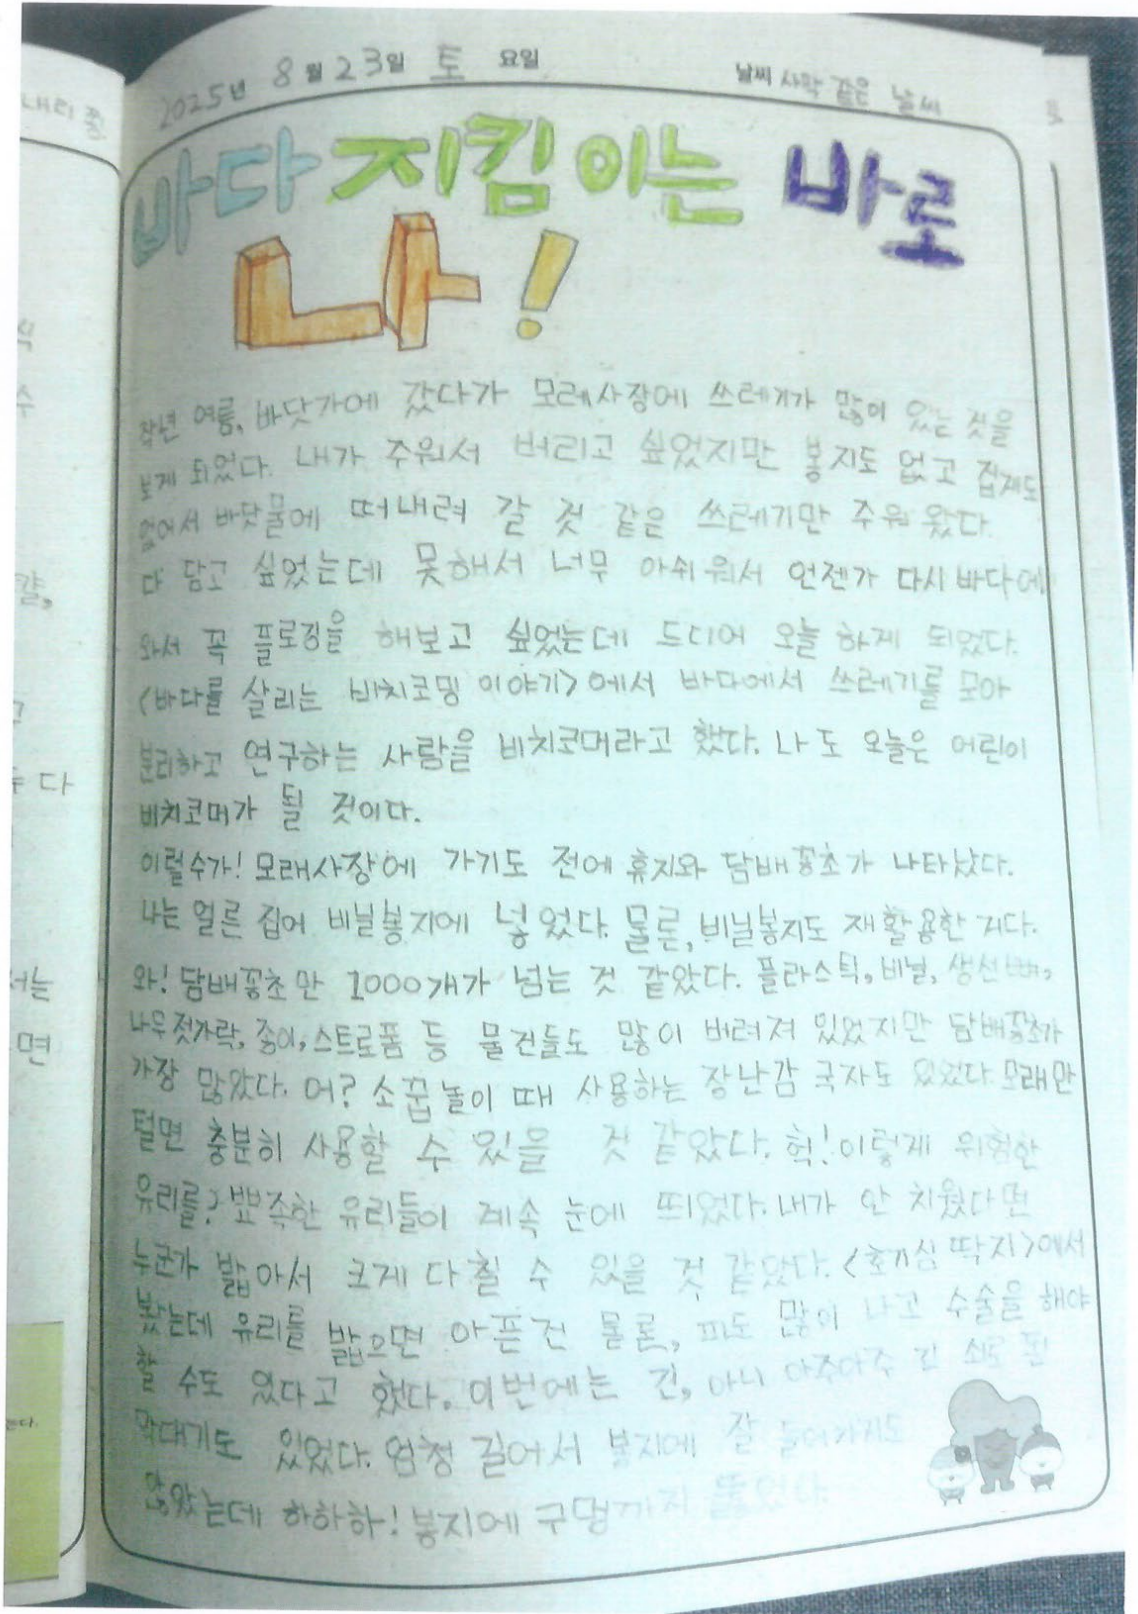 2025년 8월 23일 토 요일 날씨 사막 같은 날씨
바다 지킴이는 바로
나!
작년 여름, 바닷가에 갔다가 모레사장에 쓰레기가 많이 있는 것을
보게 되었다. 내가 주워서 버리고 싶었지만 봉지도 없고 집게도
없어서 바닷물에 떠내려 갈 것 같은 쓰레기만 주워 왔다.
다 담고 싶었는데 못해서 너무 아쉬워서 언젠가 다시 바다에
와서 꼭 플로깅을 해보고 싶었는데 드디어 오늘 하게 되었다.
<바다를 살리는 비치코밍 이야기>에서 바다에서 쓰레기를 모아
분리하고 연구하는 사람을 비치코머라고 했다. 나도 오늘은 어린이
비치코머가 될 것이다.
이럴수가! 모래사장에 가기도 전에 휴지와 담배꽁초가 나타났다.
나는 얼른 집어 비닐봉지에 넣었다. 물론, 비닐봉지도 재활용한 거다.
와! 담배꽁초만 1000개가 넘는 것 같았다. 플라스틱, 비닐, 생선뼈,
나무젓가락, 종이, 스트로폼 등 물건들도 많이 버려져 있었지만 담배꽁초가
가장 많았다. 어? 소꿉놀이 때 사용하는 장난감 국자도 있었다. 모래만
털면 충분히 사용할 수 있을 것 같았다. 헉! 이렇게 위험한
유리를? 뾰족한 유리들이 계속 눈에 띄었다. 내가 안 치웠다면
누군가 밟아서 크게 다칠 수 있을 것 같았다. <호기심 딱지>에서
봤는데 유리를 밟으면 아픈건 물론, 피도 많이 나고 수술을 해야
할 수도 있다고 했다. 이번에는 긴, 아니 아주아주 긴 쇠로 된
막대기도 있었다. 엄청 길어서 봉지에 잘 들어가지도
않았는데 하하하! 봉지에 구멍까지 뚫었다.
내리 중
수
면